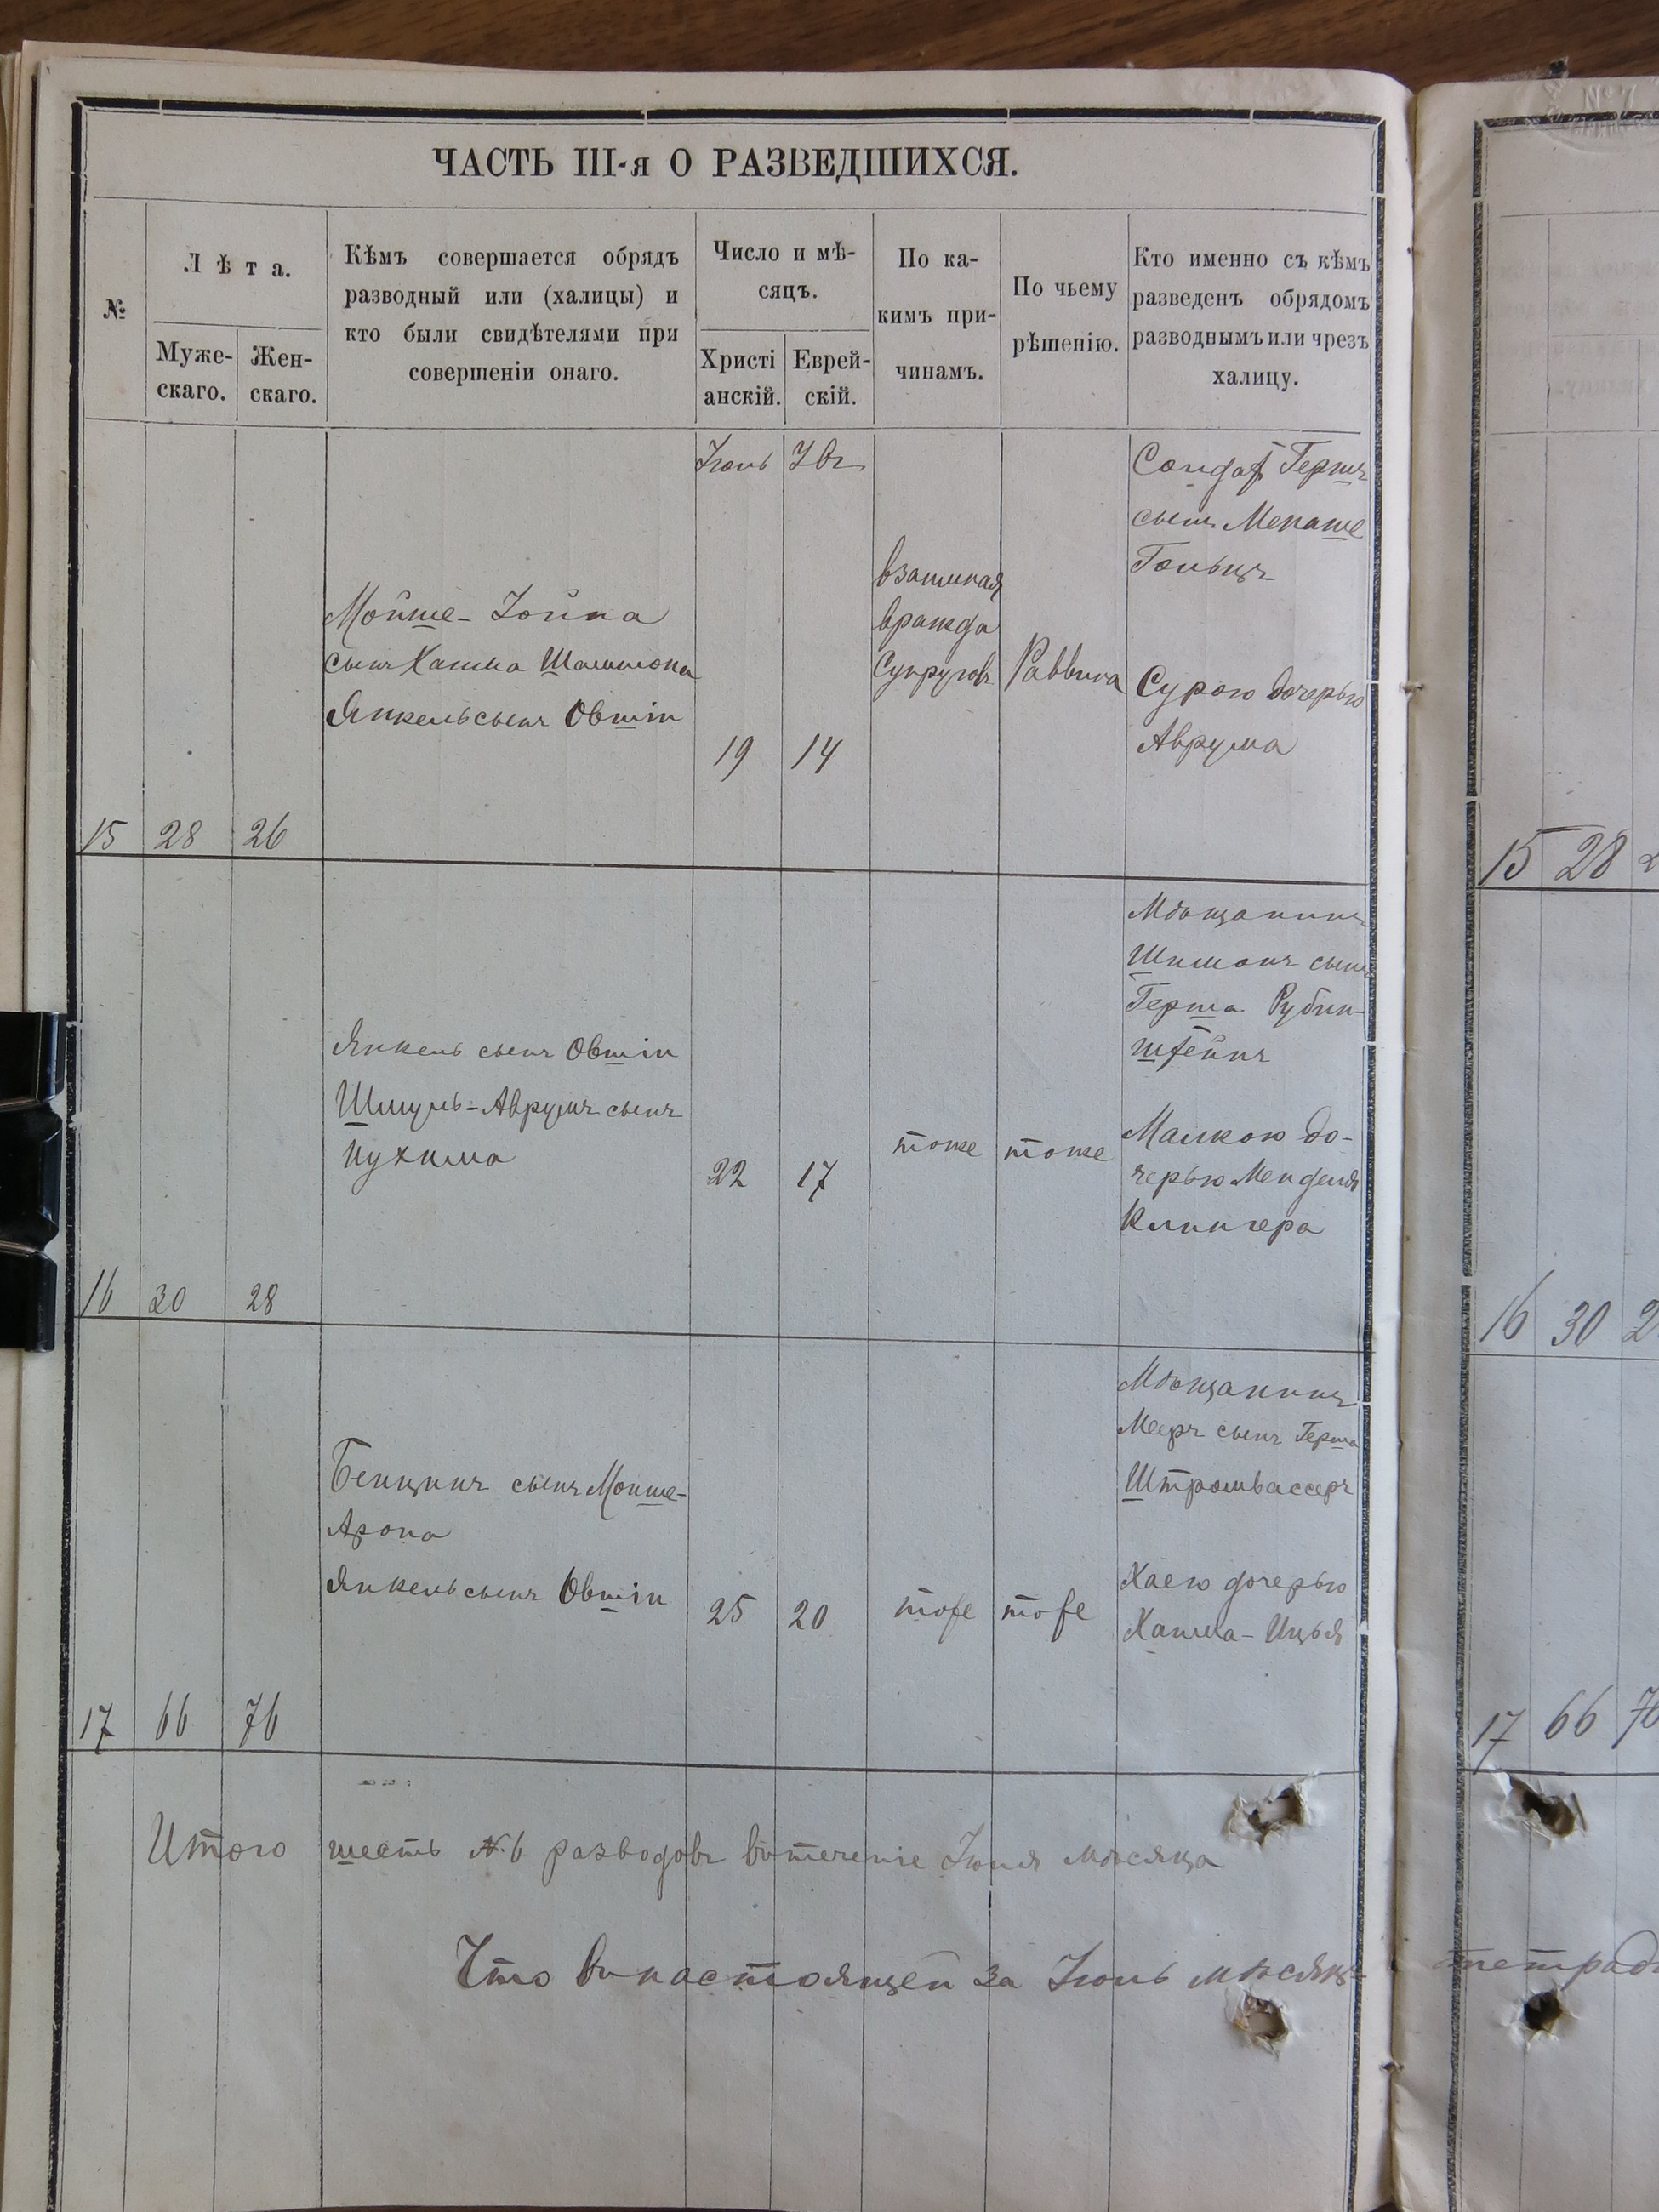 ЧАСТЬ III-я О РАЗВЕДШИХСЯ.
№
Лѣта.
Муже-
скаго.
Жен-
скаго.
Кѣмъ совершается обрядъ
разводный или (халицы) и
кто были свидѣтелями при
совершеніи онаго.
Число и мѣ-
сяцъ.
Христі
анскій.
Еврей-
скій.
По ка-
кимъ при-
чинамъ.
По чьему
рѣшенію.
Кто именно съ кѣмъ
разведенъ обрядомъ
разводнымъ или чрезъ
халицу.
15
28
26
Мойше-Іойна
сынъ Хаима Шаммона
Янкель сынъ Овшіи
19
14
взаимная
вражда
Супруговъ
Раввина
Солдатъ Гершъ
сынъ Менаше
Гольцъ
Сурою дочерью
Аврума
16
30
28
Янкель сынъ Овшіи
Шмуль-Аврумъ сынъ
Нухима
22
17
тоже
тоже
Мѣщанинъ
Шимонъ сынъ
Герша Рубин-
штейнъ
Малкою до-
черью Менделя
Клингера
17
66
76
Бенционъ сынъ Мойше-
Арона
Янкель сынъ Овшіи
25
20
тоже
тоже
Мѣщанинъ
Мееръ сынъ Герша
Штромвассеръ
Хаею дочерью
Хаима-Ицья
Итого шесть №6 разводовъ въ теченіе Іюня мѣсяца
Что въ настоящей за Іюнь мѣсяцъ тетрад
15 28
16 30 2
17 66 76